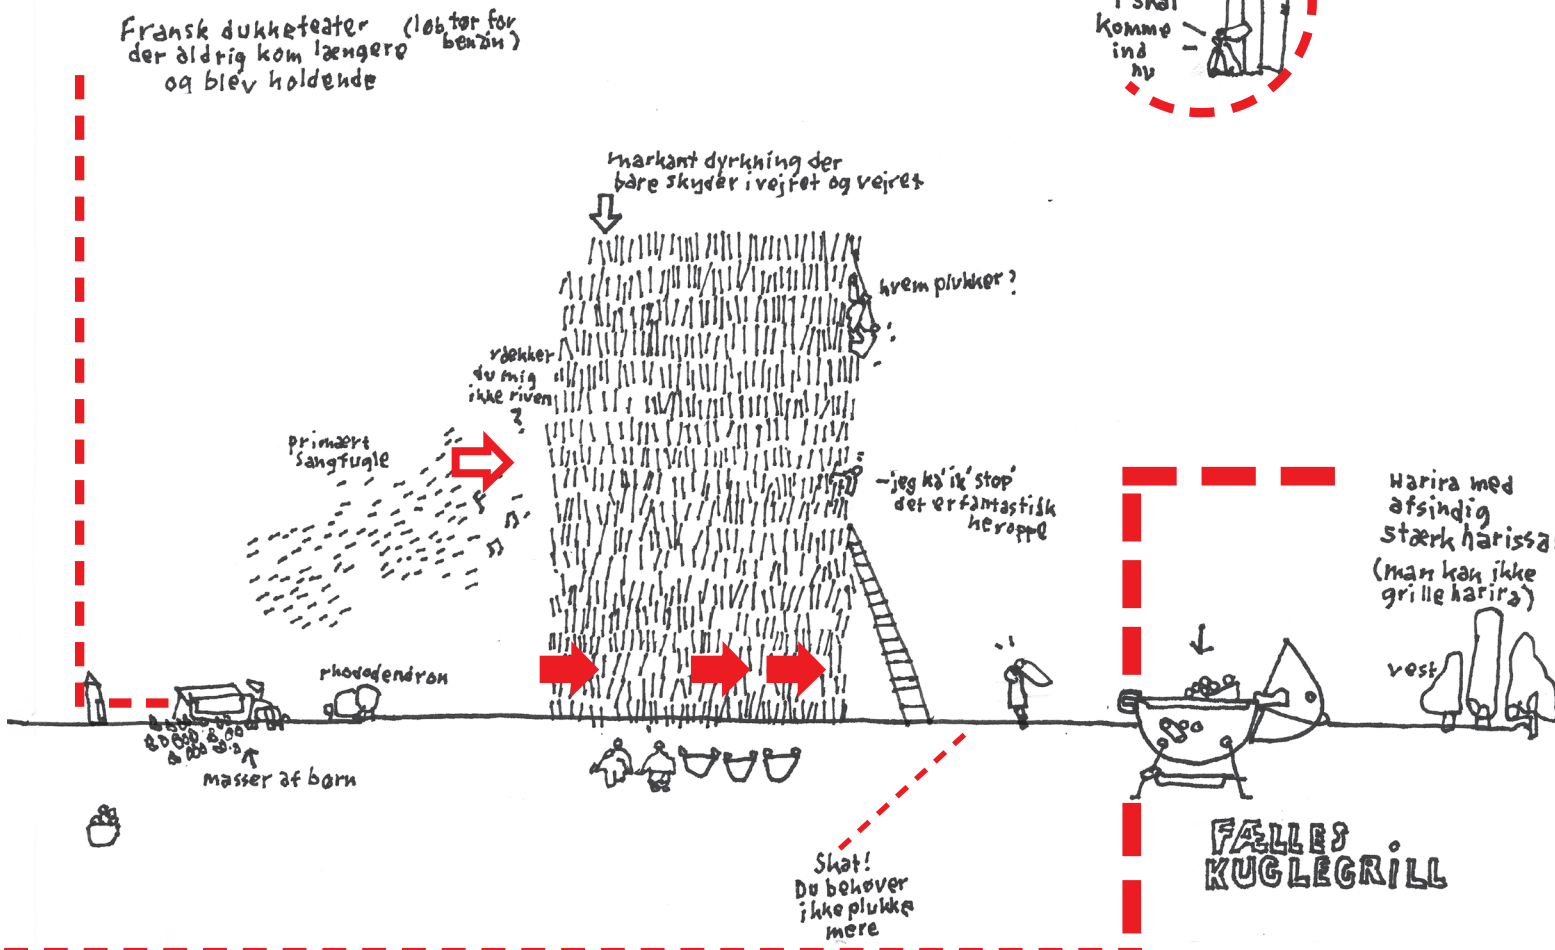 Fransk dukketeater
der aldrig kom længere
og blev holdende
(løb tør for
benzin)
i skal
komme
ind
nu
markant dyrkning der
bare skyder i vejret og vejret
hvem plukker?
rækker
du mig
ikke riven
?
primært
sangfugle
-jeg ka' ik' stop'
det er fantastisk
heroppe
Harira med
afsindig
stærk harissa
(man kan ikke
grille harira)
vest
rhododendron
masser af børn
FÆLLES
KUGLEGRILL
Skat!
Du behøver
ikke plukke
mere